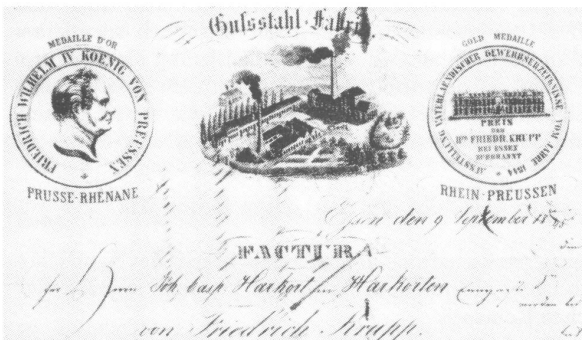 Gußstahl-Fabrik
MEDAILLE D'OR
FRIEDRICH WILHELM IV KOENIG VON PREUSSEN
PRUSSE-RHÉNANE
GOLD MEDAILLE
AUSSTELLUNG VATERLAENDISCHER GEWERBSERZEUGNISSE VOM JAHRE 1844
PREIS
DES
Hrn FRIEDR. KRUPP
BEI ESSEN
ZUERKANNT
RHEIN-PREUSSEN
Essen den 9 September 18
FACTURA
für Herrn Joh. Casp. Harkort in Harkorten
von Friedrich Krupp.